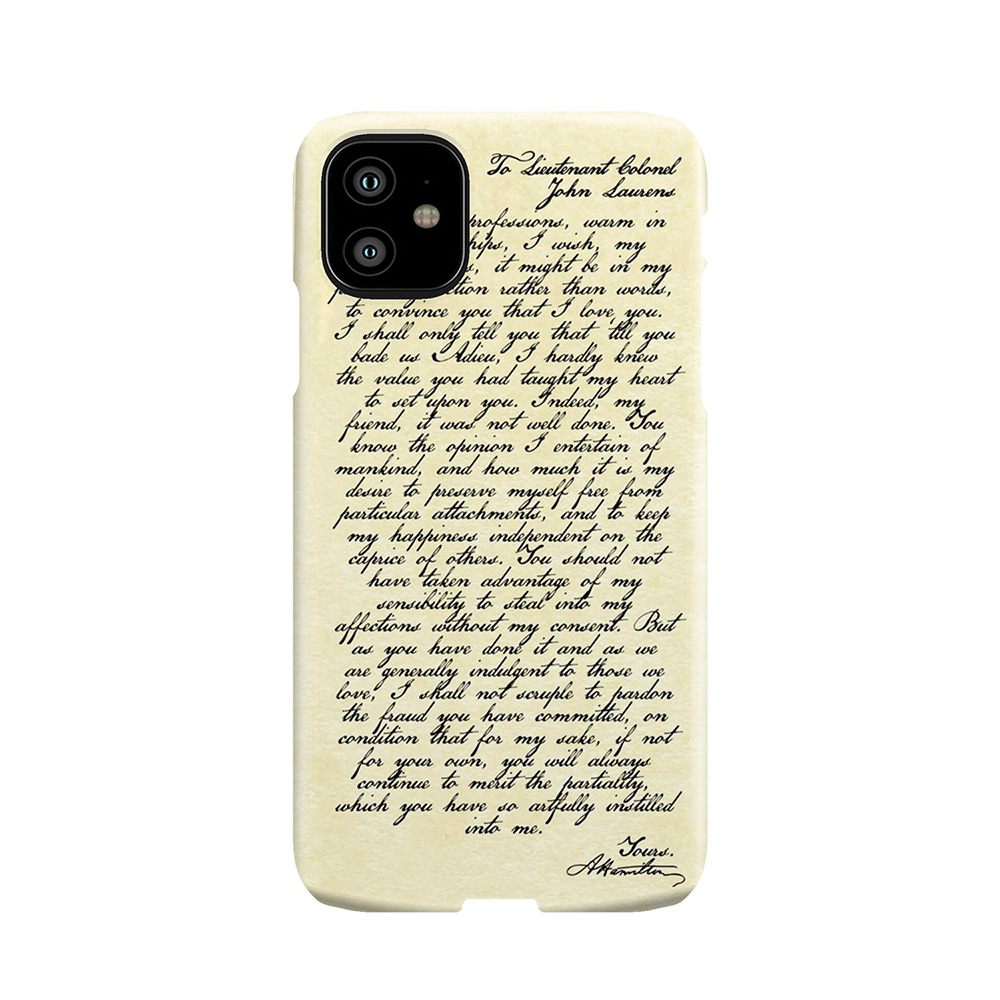 To Lieutenant Colonel
John Laurens
professions, warm in
I wish, my
it might be in my
rather than words,
to convince you that I love you.
I shall only tell you that 'till you
bade us Adieu, I hardly knew
the value you had taught my heart
to set upon you. Indeed, my
friend, it was not well done. You
know the opinion I entertain of
mankind, and how much it is my
desire to preserve myself free from
particular attachments, and to keep
my happiness independent on the
caprice of others. You should not
have taken advantage of my
sensibility to steal into my
affections without my consent. But
as you have done it and as we
are generally indulgent to those we
love, I shall not scruple to pardon
the fraud you have committed, on
condition that for my sake, if not
for your own, you will always
continue to merit the partiality,
which you have so artfully instilled
into me.
Yours.
AHamilton